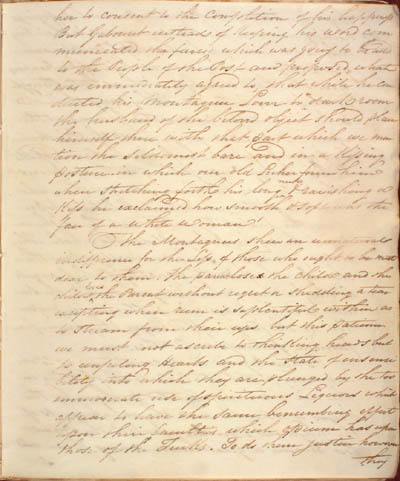 her to consent to the Completion of his happiness
But Gabourit instead of keeping his word com
municated the farce which was going to be acted
to the People of the Post and proposed, what
was immediately agreed to that while he con
ducted his Montagnee Lover to dark room
the husband of the beloved object should place
himself there with that part which we men
tion the Seldomest bare and in a Kissing
posture in which our old Lecher found him
when Stretching forth his long neck & ravishing a
Kiss he exclaimed how smooth & soft was the
face of a white woman!
The Montagnees shew an unnatural
indifference for the loss of those who ought to be most
dear to them. The parent loses the child and the
child the Parent without regret or shedding a tear
excepting when rum is so plentiful within as
to Stream from their eyes but this
we must not ascribe to thinking heads but
to unfeeling Hearts and the State of insensi
bility into which they are plunged by the too
immoderate use of spirituous Liquors which
appear to have the same benumbing effect
upon their faculties which opium has upon
those of the Turks. To do them justice however
they